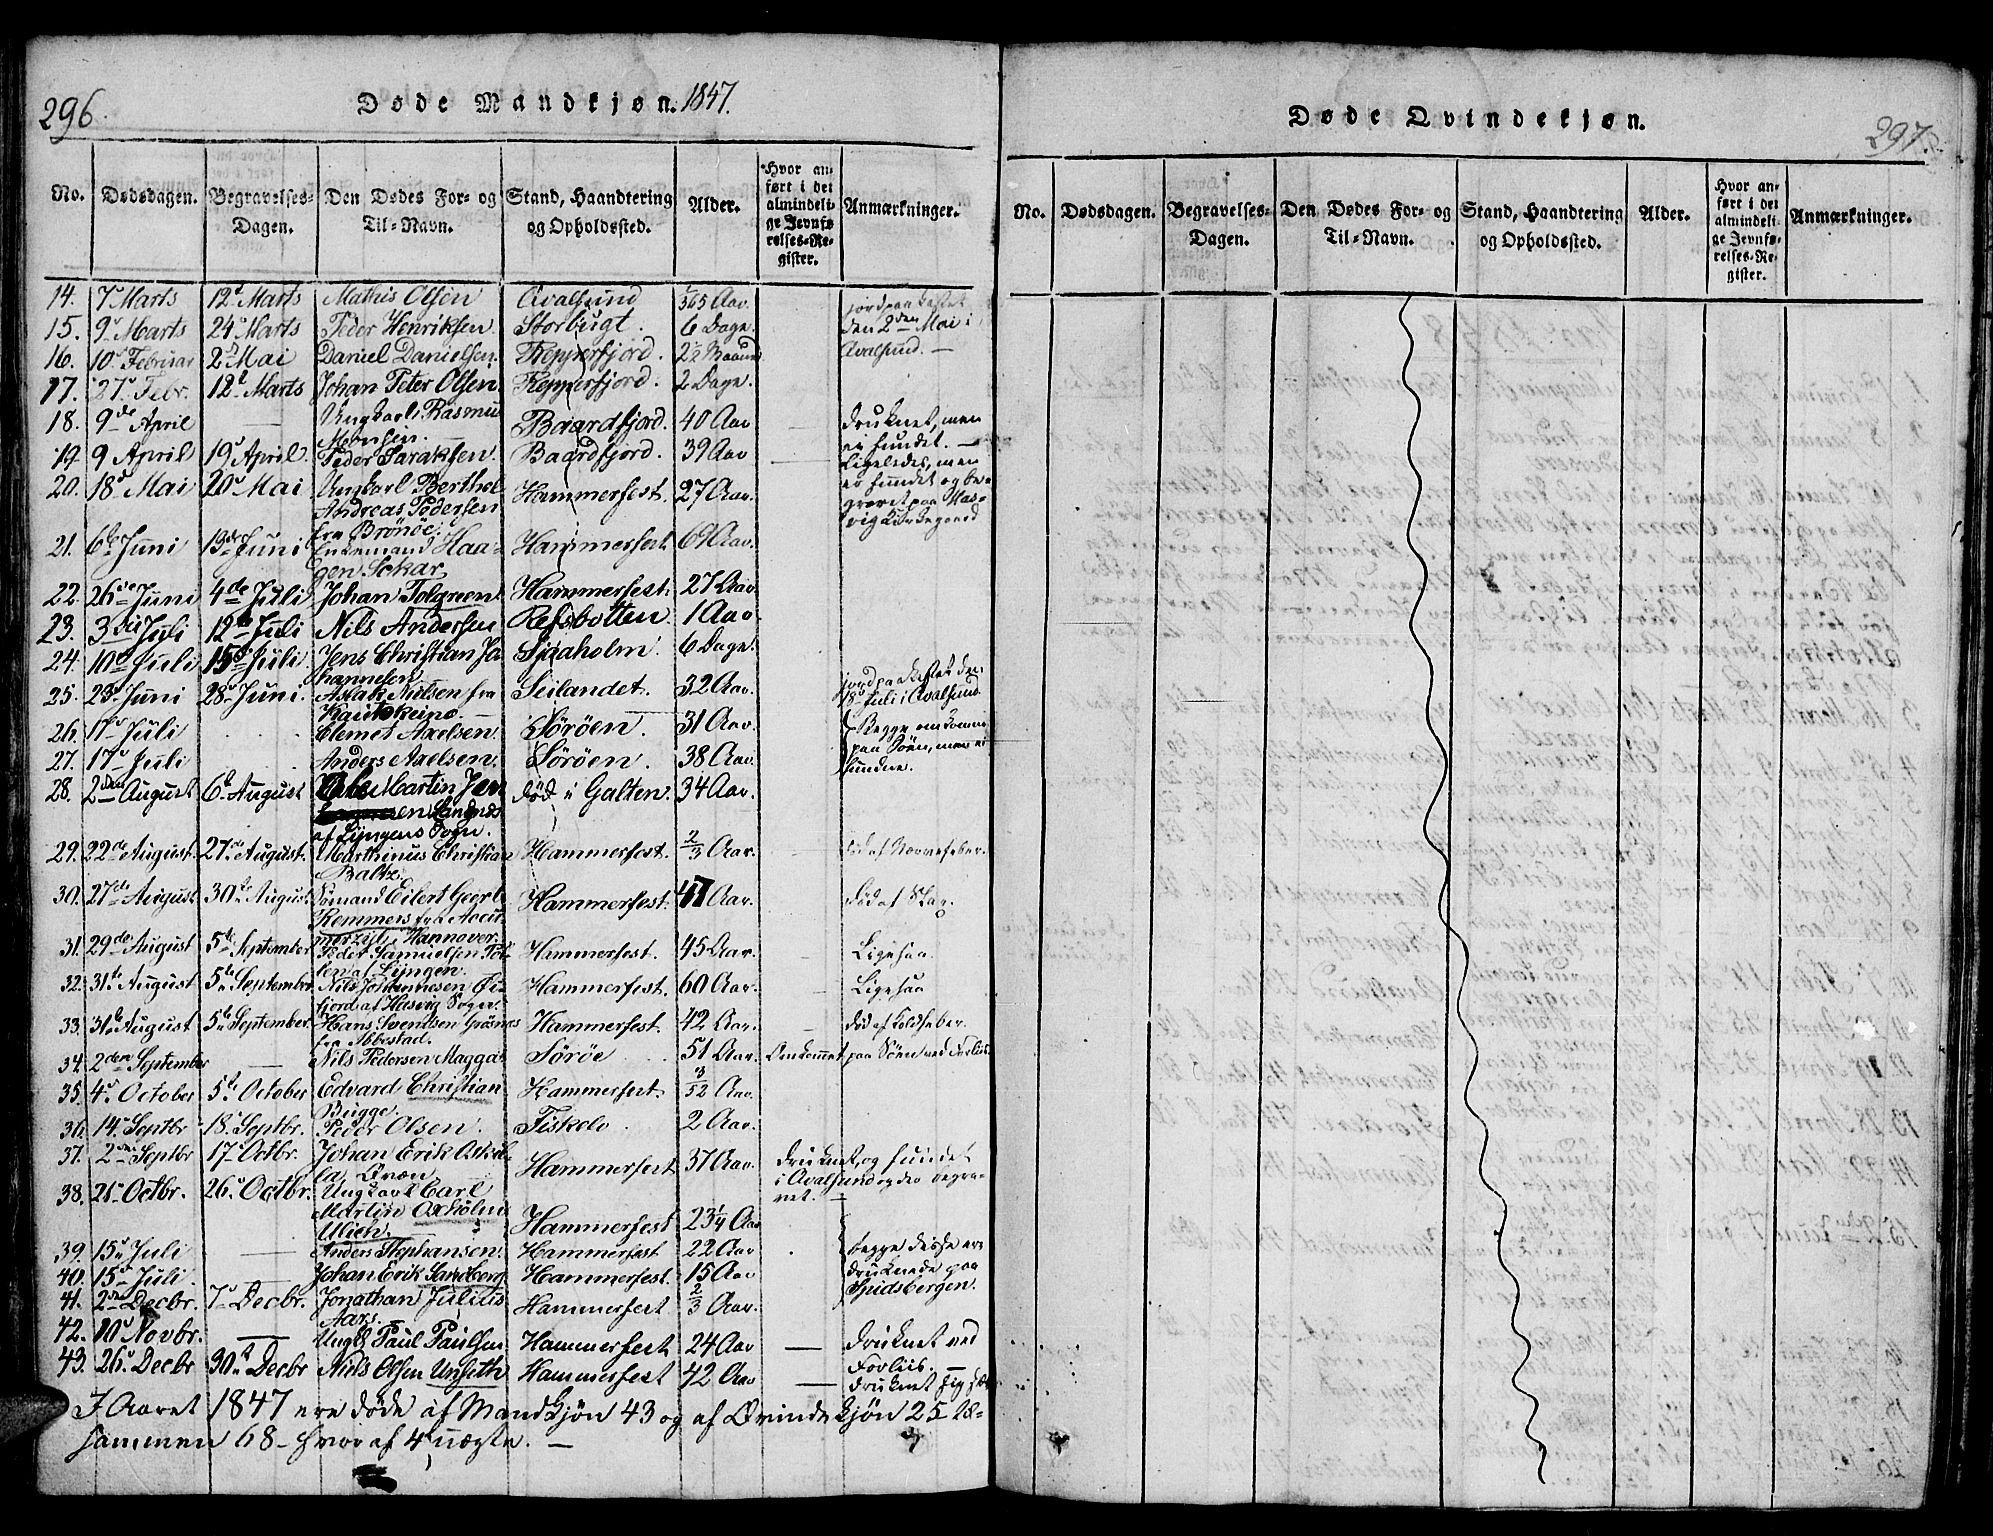 296.
Døde Mandkjøn. 1847.
No. Dødsdagen. Begravelses-Dagen. Den Dødes For- og Til-Navn. Stand, Haandtering og Opholdssted. Alder. Hvor anført i det almindelige Jevnførelses-Register. Anmærkninger.
14. 7 Marts 12 Marts Mathis Olsen Qvalsund 1/365 Aar. jordpaakastet
15. 9 Marts 24 Marts Peder Henriksen Storbugt. 6 Dage. den 2den Mai i
16. 10 Februar 2 Mai Daniel Danielsen Repperfjord. 2 1/2 Maaned Qvalsund. —
17. 27 Febr. 12 Marts Johan Peter Olsen Repperfjord. 2 Dage.
18. 9de April — Ungkarl Rasmus Monsen. Baardfjord. 40 Aar druknet, men ei fundet. —
19. 9 April 19 April. Peder Saraksen. Baardfjord. 39 Aar Ligeledes, men
20. 18 Mai 20 Mai Ungkarl Berthel Andreas Pedersen fra Brönöe. Hammerfest. 27 Aar. er fundet og begravet paa Masvig Kirkegaard
21. 6te Juni 13de Juni Enkemand Haagen Sokar Hammerfest 69 Aar.
22. 26de Juni 4de Juli Johan Tolgreen Hammerfest. 27 Aar.
23. 3die Juli 12te Juli Nils Andersen Refsbotten. 1 Aar.
24. 10de Juli 15de Juli Jens Christian Johannesen Sjøaholm. 6 Dage.
25. 23 Juni 28 Juni. Aslak Nielsen fra Kautokeino. — Seilandet. 32 Aar. jordpaakastet den 18 Juli i Qvalsund
26. 17 Juli Clemet Axelsen. Söröen. 31 Aar. Begge omkomne
27. 17 Juli Anders Axelsen. Söröen. 38 Aar. paa Söen, men ei fundne.
28. 2den August 6te August Martin Jensen af Lyngens Sogn. död i Galten. 34 Aar.
29. 22de August. 27de August. Marthinus Christian Baltz. Hammerfest. 2/3 Aar. död af Nervefeber.
30. 27de August 30te August. Sömand Eilert Geerts Remmers Hannover. Hammerfest. 47 Aar. död af Slag.
31. 29de August 5te September Peder Samuelsen af Lyngen. Hammerfest. 45 Aar. Ligesaa.
32. 31te August 5te September. Nils Johannesen Öxfjord af Hasvig Sogn. Hammerfest. 60 Aar. Ligesaa
33. 31te August 5te September. Hans Svendsen Grönnes fra Ibbestad. Hammerfest. 42 Aar. död af Koldfeber.
34. 2den September — Nils Pedersen Magga Söröe 51 Aar. Omkommet paa Söen ved Forliis.
35. 4 October 5te October Edvard Christian Bugge. Hammerfest. 3/52 Aar.
36. 14 Septbr 18 Septbr. Peder Olsen. Fiskelv. 2 Aar.
37. 2den Septbr 17 Octbr. Johan Erik Qvæn Hammerfest 37 Aar. druknet, og fundet i Qvalsund og der begravet. —
38. 21 Octbr. 26 Octbr. Ungkarl Carl Martin Oxholm Ulich. Hammerfest 23 1/4 Aar
39. 15 Juli — Anders Stephansen. Hammerfest 22 Aar begge disse ere
40. 15 Juli. — Johan Erik Sandberg Hammerfest. 15 Aar druknede paa
41. 2den Decbr. 7 Decbr. Jonathan Julius Aars. Hammerfest 2/3 Aar. Spidsbergen.
42. 10 Novbr. — Ungk. Paul Paulsen Hammerfest 24 Aar — druknet ved Forliis.
43. 26 Decbr 30te Decbr Niels Olsen Unseth Hammerfest 42 Aar — druknet sig
I Aaret 1847 ere døde af Mandkjön 43 og af Qvindekjön 25 til-
sammen 68 – hvoraf 4 uægte. —
297.
Døde Qvindekjøn.
No. Dødsdagen. Begravelses-Dagen. Den Dødes For- og Til-Navn. Stand, Haandtering og Opholdssted. Alder. Hvor anført i det almindelige Jevnførelses-Register. Anmærkninger.